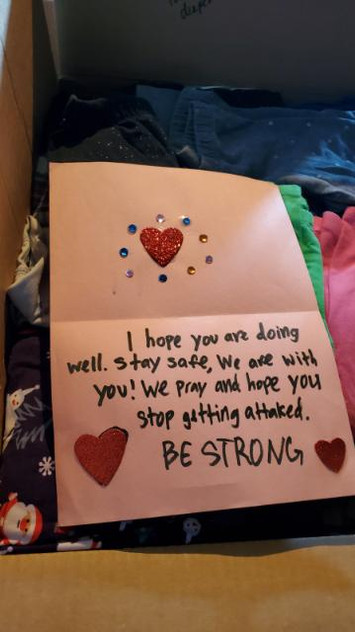 diapers
I hope you are doing
well. stay safe, We are with
you! We pray and hope you
stop getting attaked.
BE STRONG